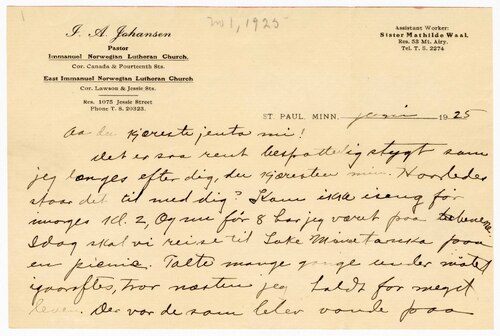 J. A. Johansen
Pastor
Immanuel Norwegian Lutheran Church,
Cor. Canada & Fourteenth Sts.
East Immanuel Norwegian Lutheran Church
Cor. Lawson & Jessie Sts.
Res. 1075 Jessie Street
Phone T. S. 20323.
1, 1925
Assistant Worker:
Sister Mathilde Waal.
Res. 53 Mt. Airy.
Tel. T. S. 2274
ST. PAUL, MINN., juni 1925
Aa du kjæreste jenta mi!
Det er saa rent bespottelig stygt som
jeg længes efter dig, du kjæresten min. Hvorledes
staar det til med dig? Kom ikke iseng før
imorges kl. 2, Og nu før 8 har jeg været paa benene.
Idag skal vi reise til Lake Minnetonka paa
en picnic. Talte mange gange under møtet
igaaraftes, tror næsten jeg holdt for meget
leven. Der var de som blev vonde paa